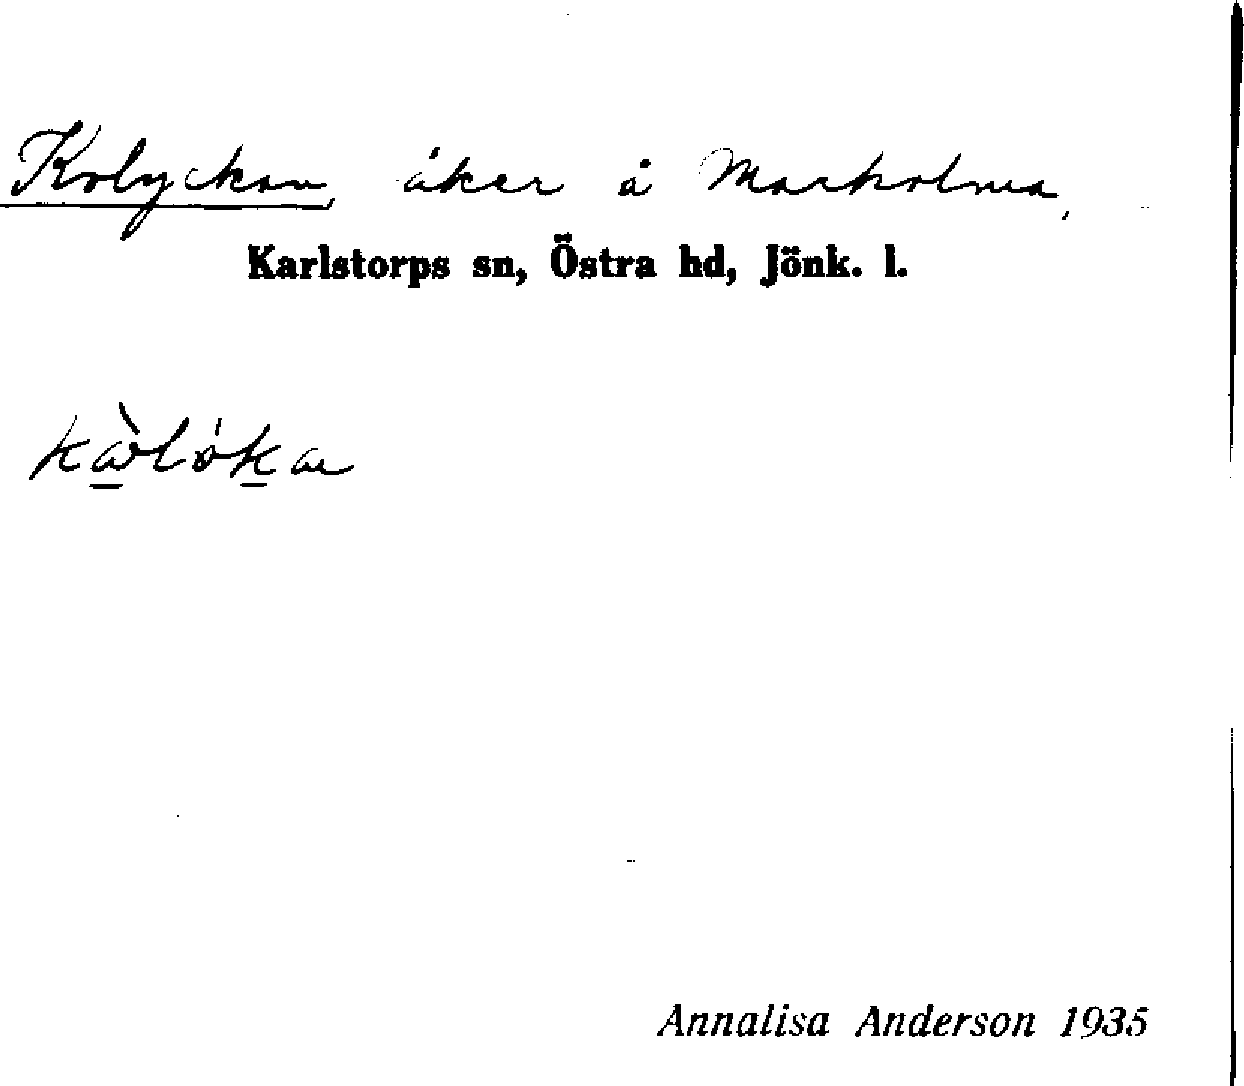 Kolyckan, åker å Marholma,
Karlstorps sn, Östra hd, Jönk. l.
Annalisa Anderson 1935